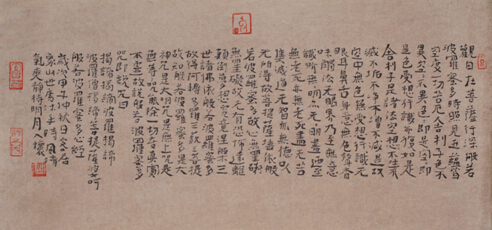 觀自在菩薩行深般若
波羅蜜多時照見五蘊皆
空度一切苦厄舍利子色不
異空空不異色色即是空空即
是色受想行識亦復如是
舍利子是諸法空相不生不
滅不垢不淨不增不減是故
空中無色無受想行識无
眼耳鼻舌身意無色聲香
味觸法无眼界乃至無意
識界無無明亦无無明盡乃至
無老死亦無老死盡无苦
集滅道无智亦無得以
无所得故菩提薩埵依般
若波羅蜜多故心無罣礙
無罣礙故无有恐怖遠離
顛倒夢想究竟涅槃三
世諸佛依般若波羅蜜多
故得阿耨多羅三藐三菩提
故知般若波羅蜜多是大
神咒是大明咒是無上咒是
無等等咒能除一切苦真實
不虛故說般若波羅蜜多
咒即說咒曰
揭諦揭諦波羅揭諦
波羅僧揭諦菩提薩婆訶
般若波羅蜜多心經
歲次甲子仲秋日居
象山時風清
氣爽靜待明月入懷